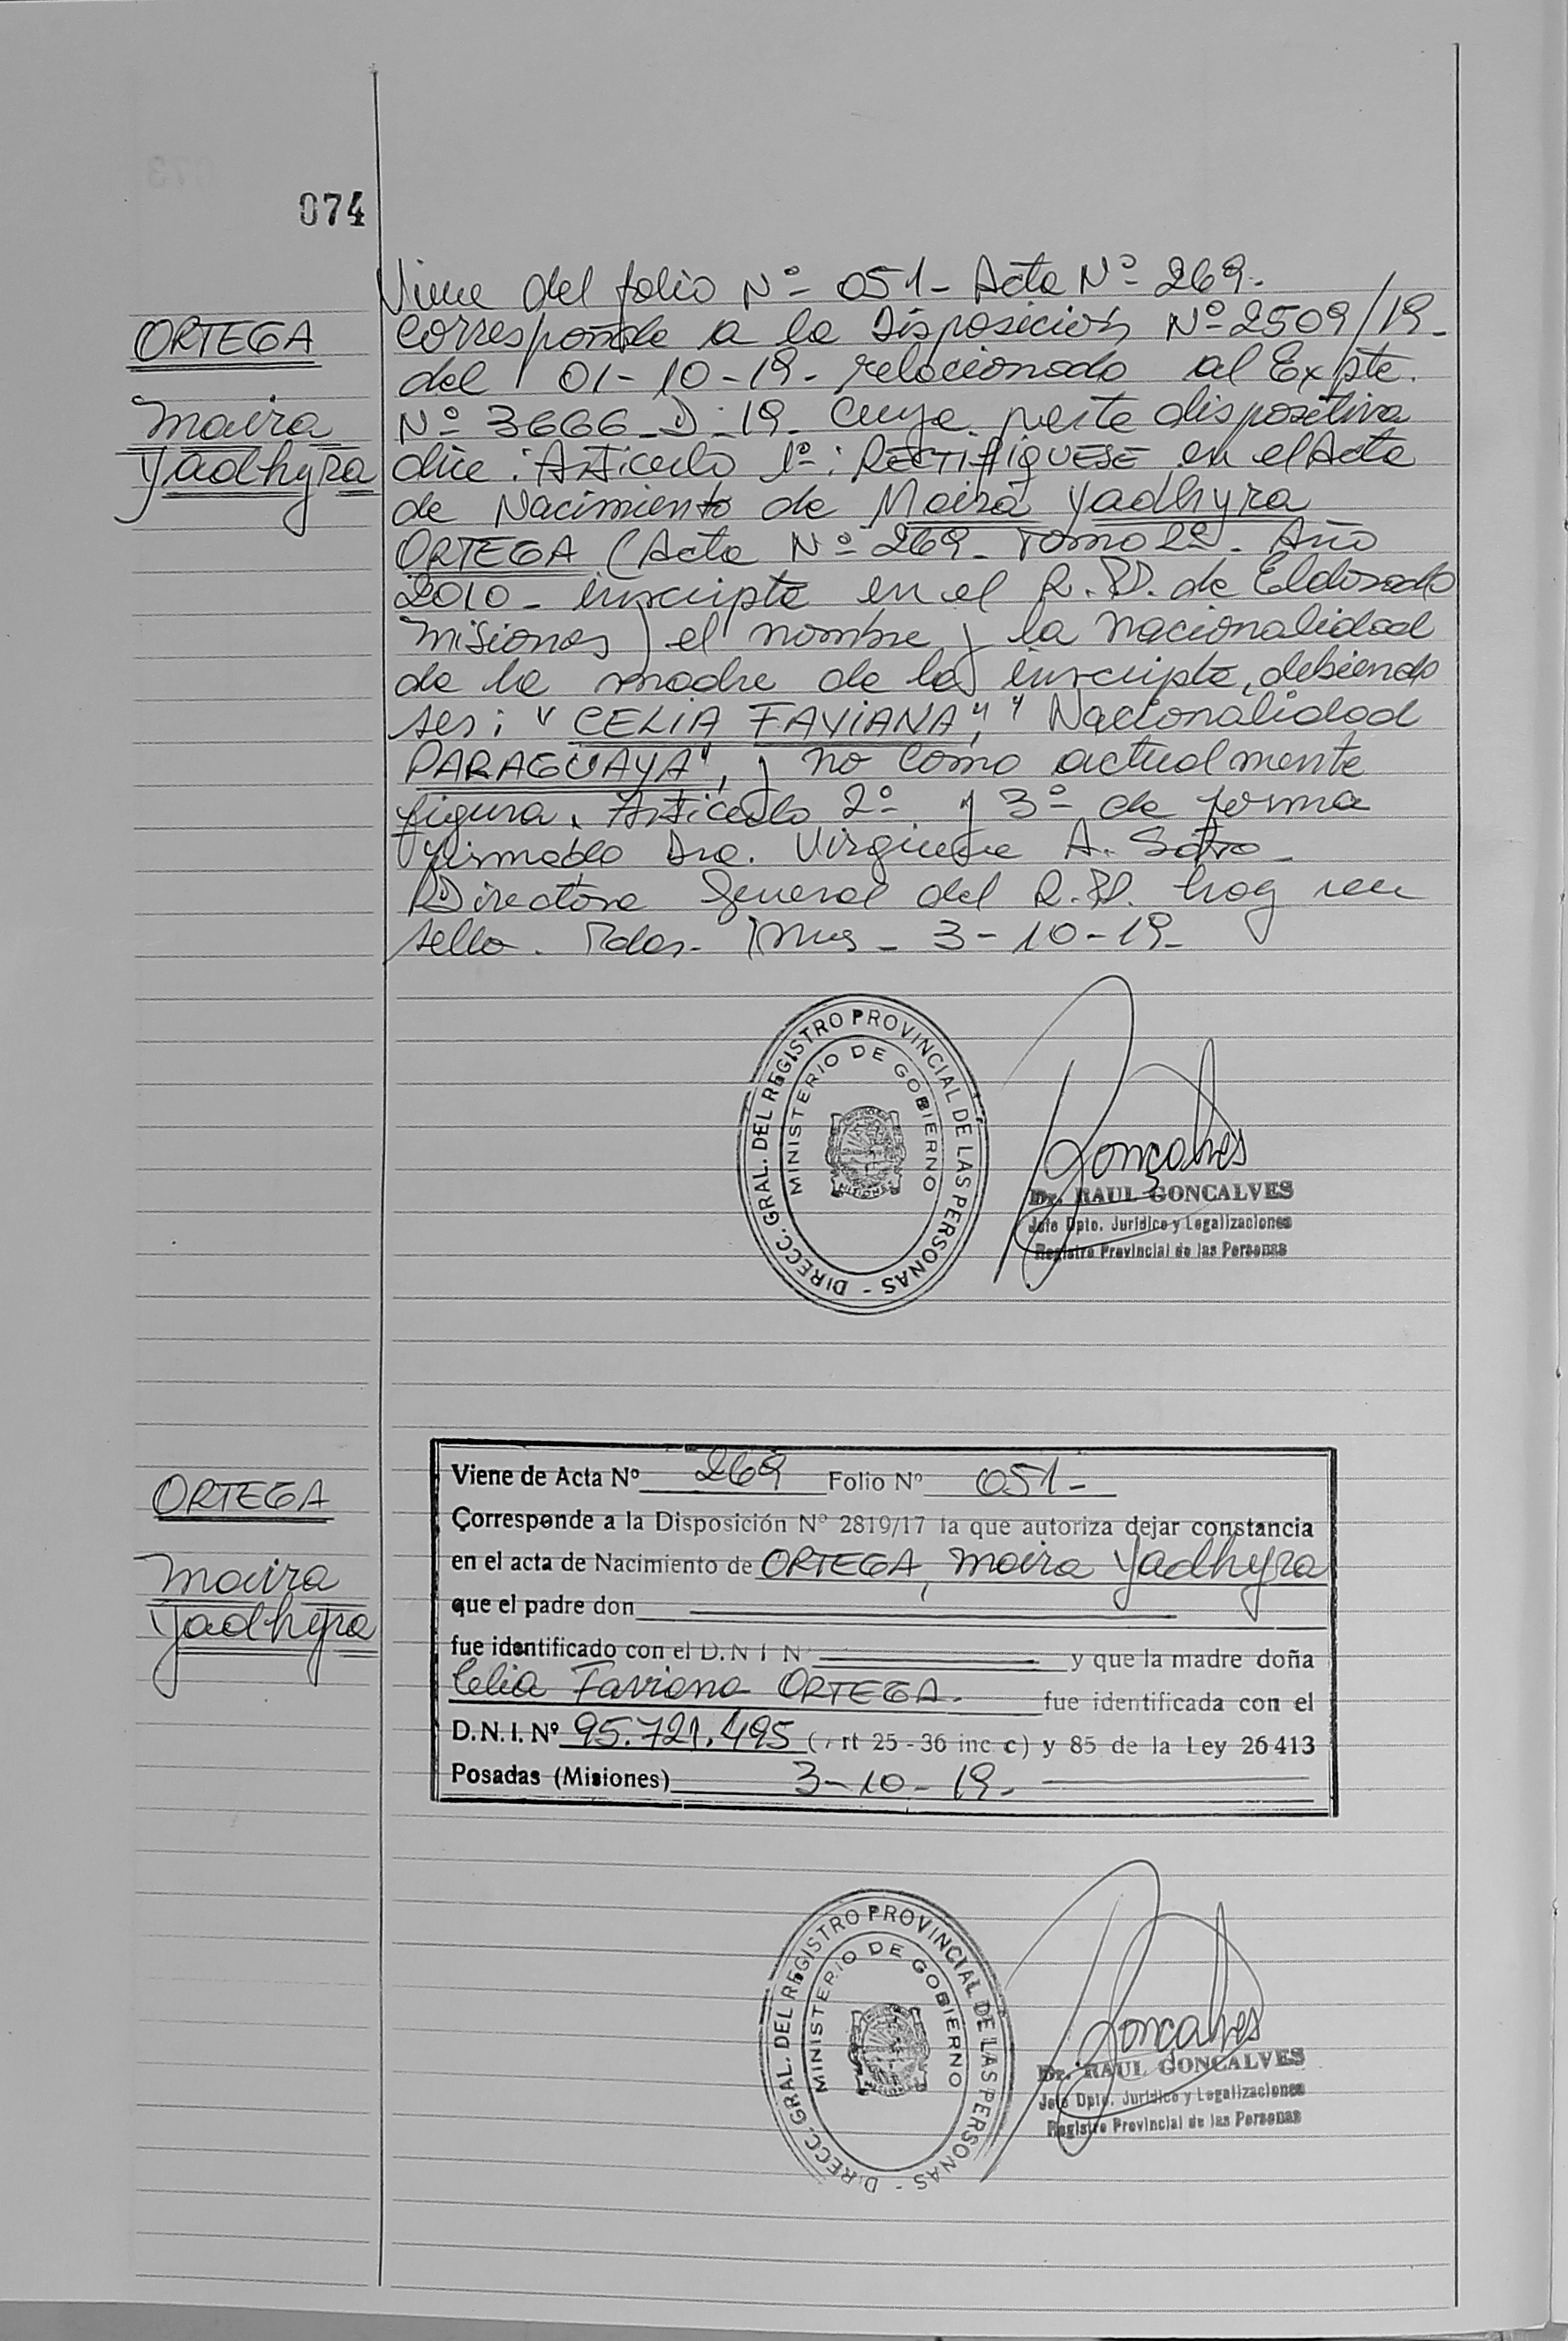 074
Viene del folio Nº 051- Acta Nº 269.
ORTEGA
Corresponde a la Disposición Nº 2509/19-
del 01-10-19- relacionado al Expte.
Maira
Nº 3666-D-19- Cuya parte dispositiva
Yadhyra
dice: Artículo 1º: RECTIFIQUESE en el Acta
de Nacimiento de Maira Yadhyra
ORTEGA (Acta Nº 269- Tomo 2º- Año
2010- inscripta en el R.P. de Eldorado
Misiones) el nombre y la nacionalidad
de la madre de la inscripta, debiendo
ser: "CELIA FAVIANA", "Nacionalidad
PARAGUAYA", y no como actualmente
figura. Artículo 2º y 3º de forma
firmado Dra. A. Soto-
Directora General del R.P. hay un
sello. Pdas- Mnes- 3-10-19-
DIRECC. GRAL. DEL REGISTRO PROVINCIAL DE LAS PERSONAS -
MINISTERIO DE GOBIERNO
MISIONES
Gonçalves
Dr. RAUL GONCALVES
Jefe Dpto. Jurídico y Legalizaciones
Registro Provincial de las Personas
Viene de Acta Nº 269 Folio Nº 051-
ORTEGA
Corresponde a la Disposición Nº 2819/17 la que autoriza dejar constancia
Maira
en el acta de Nacimiento de ORTEGA, Maira Yadhyra
Yadhyra
que el padre don
fue identificado con el D.N I N y que la madre doña
Celia Faviana ORTEGA. fue identificada con el
D.N.I. Nº 95.721.495 ( rt 25-36 inc c) y 85 de la Ley 26 413
Posadas (Misiones) 3-10-19-
DIRECC. GRAL. DEL REGISTRO PROVINCIAL DE LAS PERSONAS -
MINISTERIO DE GOBIERNO
Gonçalves
Dr. RAUL GONCALVES
Jefe Dpto. Jurídico y Legalizaciones
Registro Provincial de las Personas